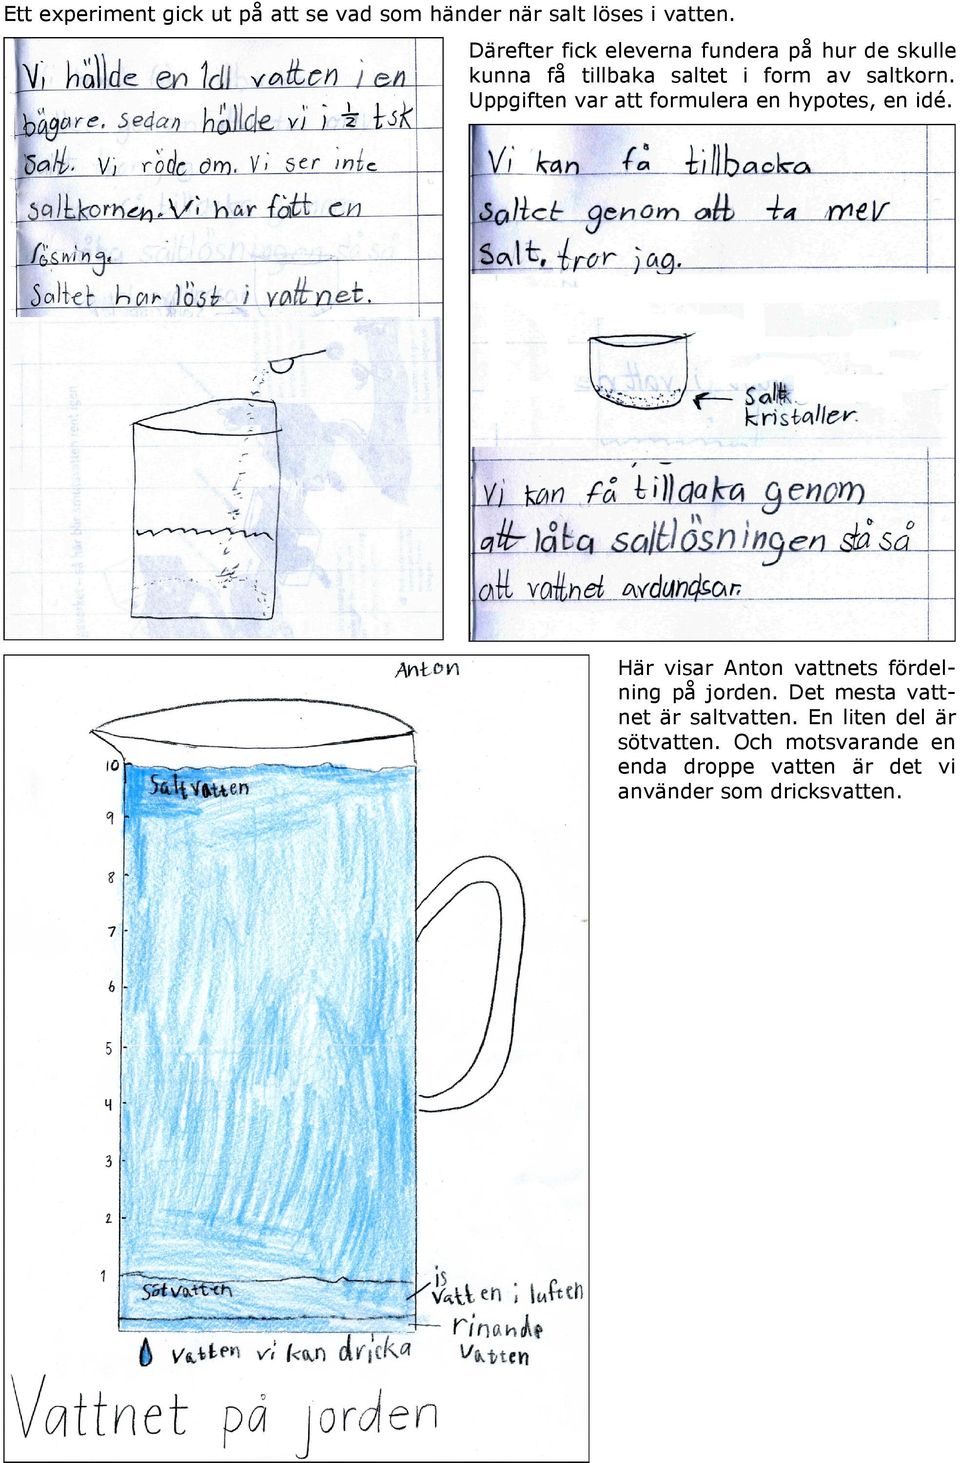 Ett experiment gick ut på att se vad som händer när salt löses i vatten.
Vi hällde en 1dl vatten i en
bägare. Sedan hällde vi i ½ tsk
Salt. Vi röde om. Vi ser inte
saltkornen. Vi har fått en
lösning.
Saltet har löst i vattnet.
Därefter fick eleverna fundera på hur de skulle
kunna få tillbaka saltet i form av saltkorn.
Uppgiften var att formulera en hypotes, en idé.
Vi kan få tillbacka
saltet genom att ta mer
Salt, tror jag.
Salt
kristaller.
Vi kan få tilldaka genom
att låta saltlösningen stå så
att vattnet avdundsar.
Anton
10
Saltvatten
9
8
7
6
5
4
3
2
1
Sötvatten
is
Vatten i luften
rinande
Vatten
Vatten vi kan dricka
Vattnet på jorden
Här visar Anton vattnets fördel-
ning på jorden. Det mesta vatt-
net är saltvatten. En liten del är
sötvatten. Och motsvarande en
enda droppe vatten är det vi
använder som dricksvatten.